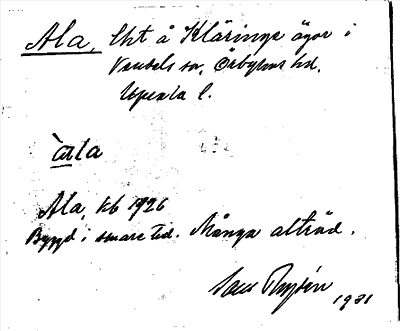 Ala, lht å Klärings ägor i
Vendels sn, Örbyhus hd.
Upsala l.
àla
Ala, kb 1926
Byggd i senare tid. Många alträd.
1931